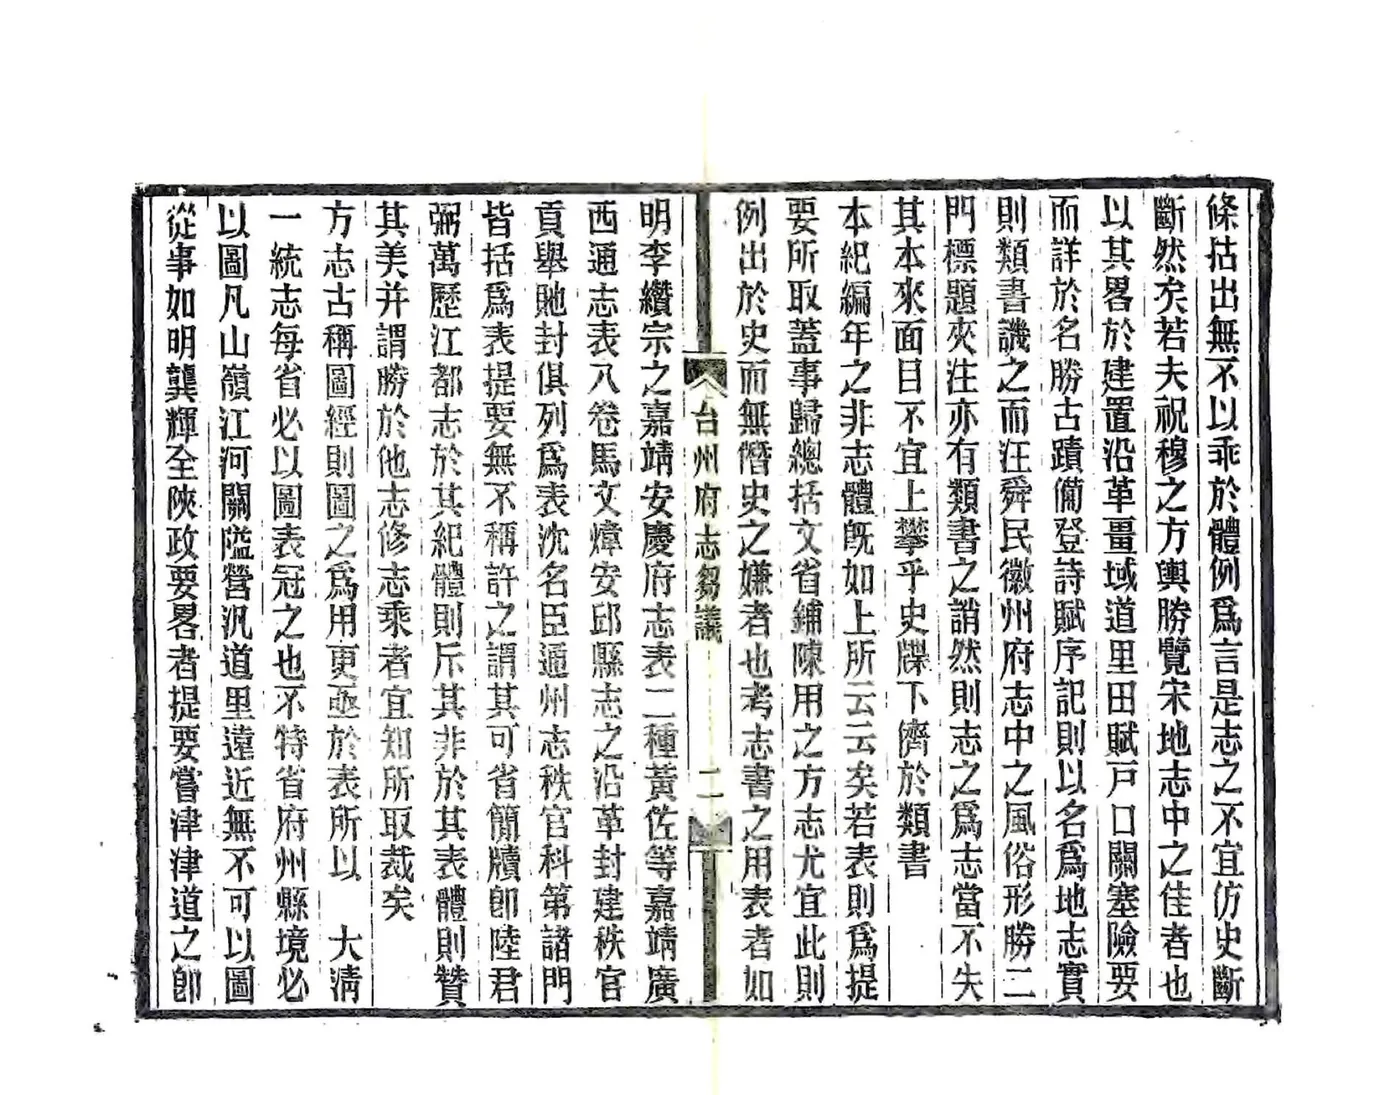 條拈出無不以乖於體例爲言是志之不宜仿史斷
斷然矣若夫祝穆之方輿勝覽宋地志中之佳者也
以其畧於建置沿革畺域道里田賦戸口關塞險要
而詳於名勝古蹟僃登詩賦序記則以名爲地志實
則類書譏之而汪舜民徽州府志中之風俗形勝二
門標題夾注亦有類書之誚然則志之爲志當不失
其本來面目不宜上攀乎史牒下儕於類書
本紀編年之非志體旣如上所云云矣若表則爲提
要所取蓋事歸總括文省鋪陳用之方志尤宜此則
例出於史而無僭史之嫌者也考志書之用表者如
台州府志芻議
二
明李纘宗之嘉靖安慶府志表二種黃佐等嘉靖廣
西通志表八卷馬文煒安邱縣志之沿革封建秩官
貢舉貤封俱列爲表沈名臣通州志秩官科第諸門
皆括爲表提要無不稱許之謂其可省簡牘卽陸君
弼萬歷江都志於其紀體則斥其非於其表體則贊
其美并謂勝於他志修志乘者宜知所取裁矣
方志古稱圖經則圖之爲用更亟於表所以　大淸
一統志每省必以圖表冠之也不特省府州縣境必
以圖凡山嶺江河關隘營汛道里遠近無不可以圖
從事如明龔輝全陝政要畧者提要嘗津津道之卽